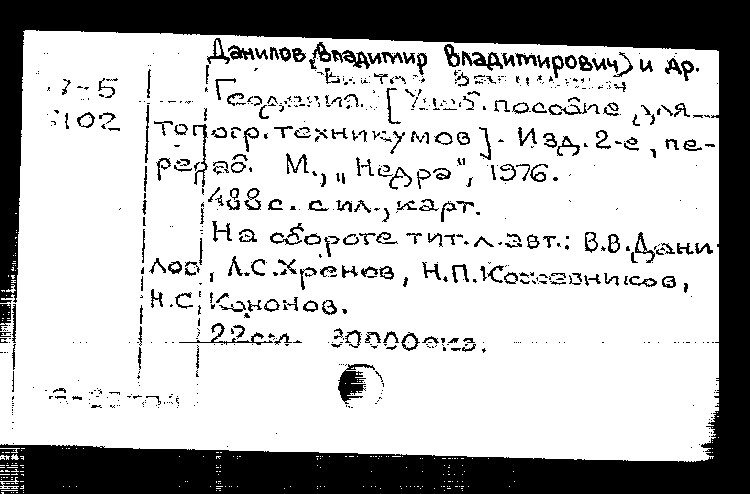 Данилов (Владимир Владимирович) и др.
Виктор Васильевич
Геодезия. [Учеб. пособие для
топогр. техникумов]. Изд. 2-е, пе-
рераб. М., „Недра", 1976.
488 с. с ил., карт.
На обороте тит. л. авт.: В.В. Дани-
лов, Л.С. Хренов, Н.П. Кожевников,
Н.С. Кононов.
22 см. 30000 экз.